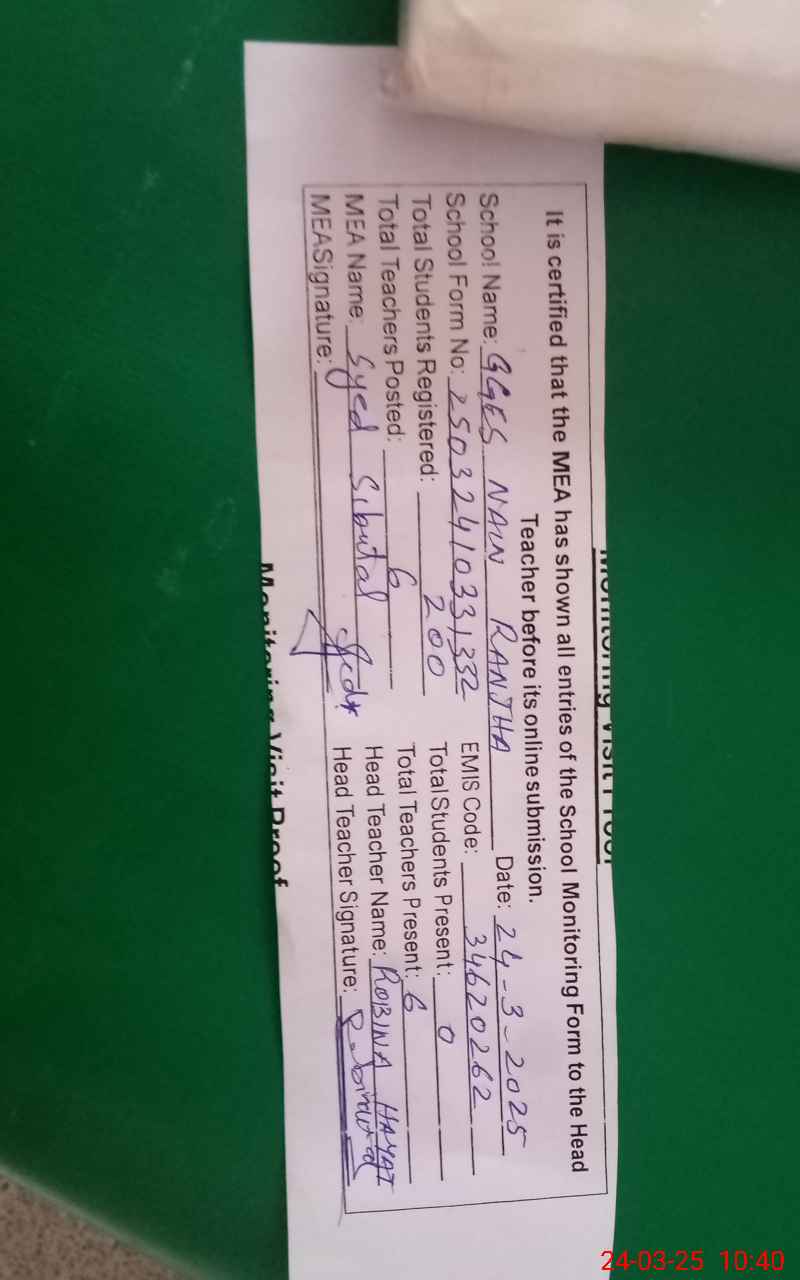 Monitoring Visit Proof
It is certified that the MEA has shown all entries of the School Monitoring Form to the Head
Teacher before its online submission.
School Name: GGES NAIN RANJHA Date: 24-3-2025
School Form No: 25032410331332 EMIS Code: 34620262
Total Students Registered: 200 Total Students Present: 0
Total Teachers Posted: 6 Total Teachers Present: 6
MEA Name: Syed Sibutal Head Teacher Name: ROBINA HAYAT
MEASignature: Head Teacher Signature:
Monitoring Visit Proof
24-03-25 10:40